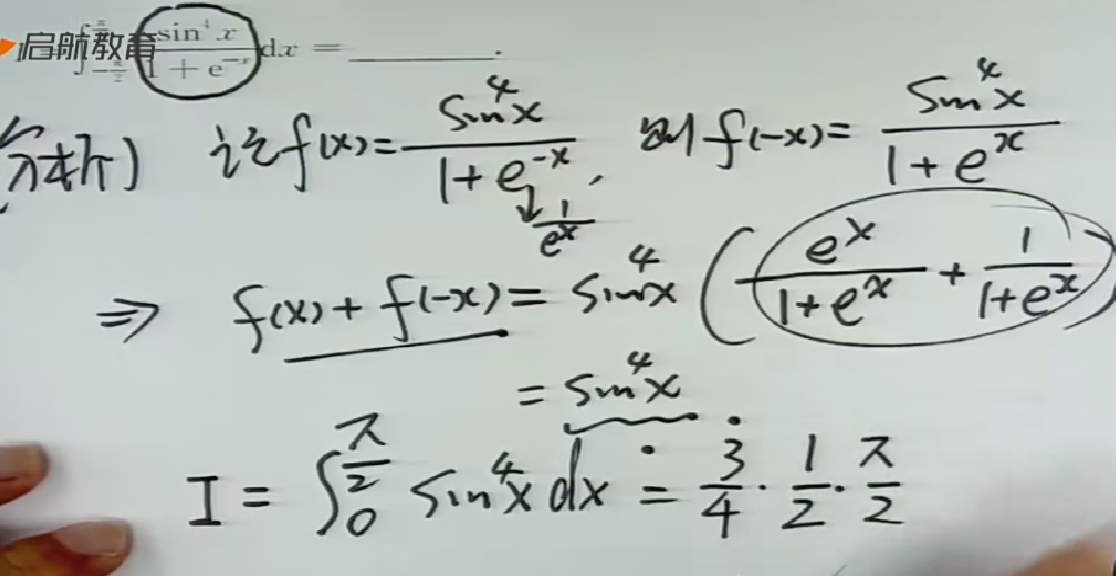 启航教育
∫_{-π/2}^{π/2} sin⁴x/(1 + e^{-x}) dx = ______.
分析) 记f(x)= sin⁴x/(1+e^{-x}), 则f(-x)= sin⁴x/(1+e^x)
↓ 1/e^x
⇒ f(x)+f(-x)= sin⁴x (e^x/(1+e^x) + 1/(1+e^x))
= sin⁴x
I = ∫_0^{π/2} sin⁴x dx = 3/4 · 1/2 · π/2